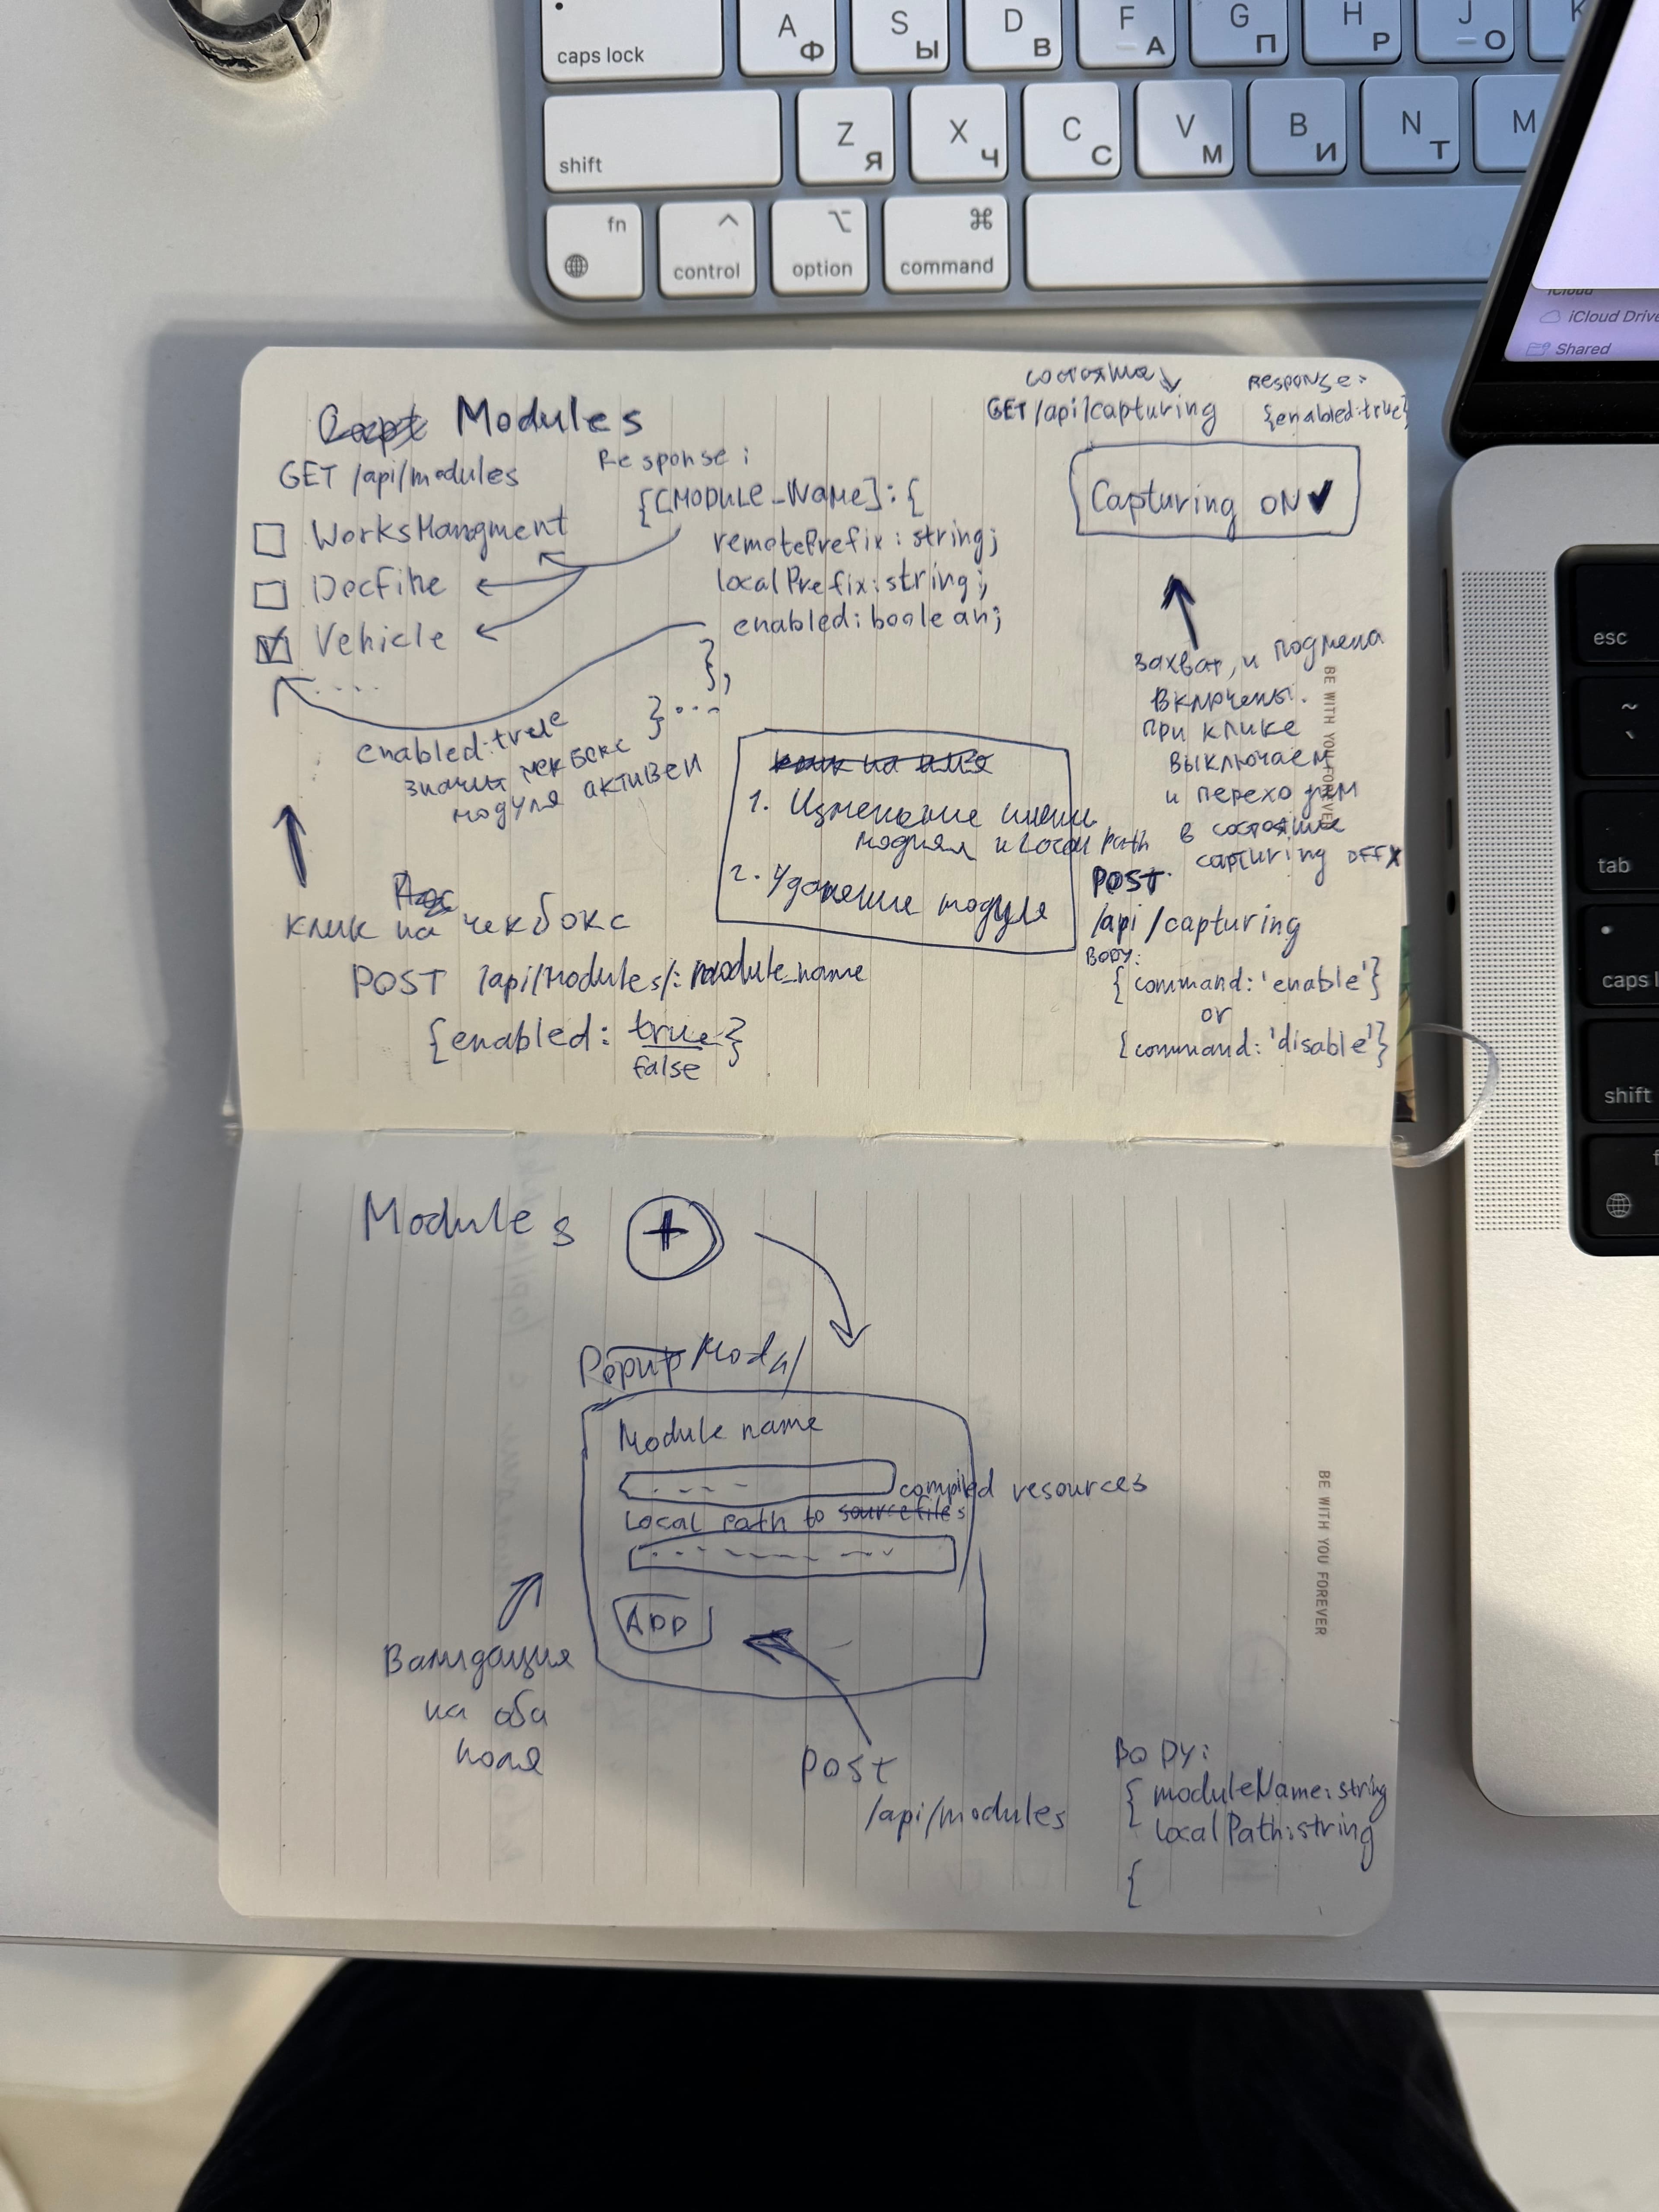 caps lock
A Ф
S Ы
D В
F А
G П
H Р
J О
K
shift
Z Я
X Ч
C С
V М
B И
N Т
M
fn
control
option
command
iCloud
iCloud Drive
Shared
esc
~
`
tab
caps l
shift
f
Modules
GET /api/modules
WorksMangment
DocFine
Vehicle
....
Response:
{[MODULE_Name]: {
remotePrefix: string;
localPrefix: string;
enabled: boolean;
},
}...
enabled: true
значит чекбокс
модуля активен
клик на чекбокс
POST /api/modules/:module_name
{enabled: true}
false
клик на имя
1. Изменение имени
модуля и local path
2. Удаление модуля
состояние
GET /api/capturing
Response:
{enabled:true}
Capturing ON ✓
захват, и подмена
включены.
при клике
выключаем
и переходим
в состояние
capturing OFF X
POST
/api/capturing
BODY:
{command: 'enable'}
or
{command: 'disable'}
BE WITH YOU FOREVER
Modules +
Popup Modal
Module name
compiled resources
Local Path to source files
ADD
Валидация
на оба
поля
POST
/api/modules
BODY:
{ moduleName: string
localPath: string
{
BE WITH YOU FOREVER